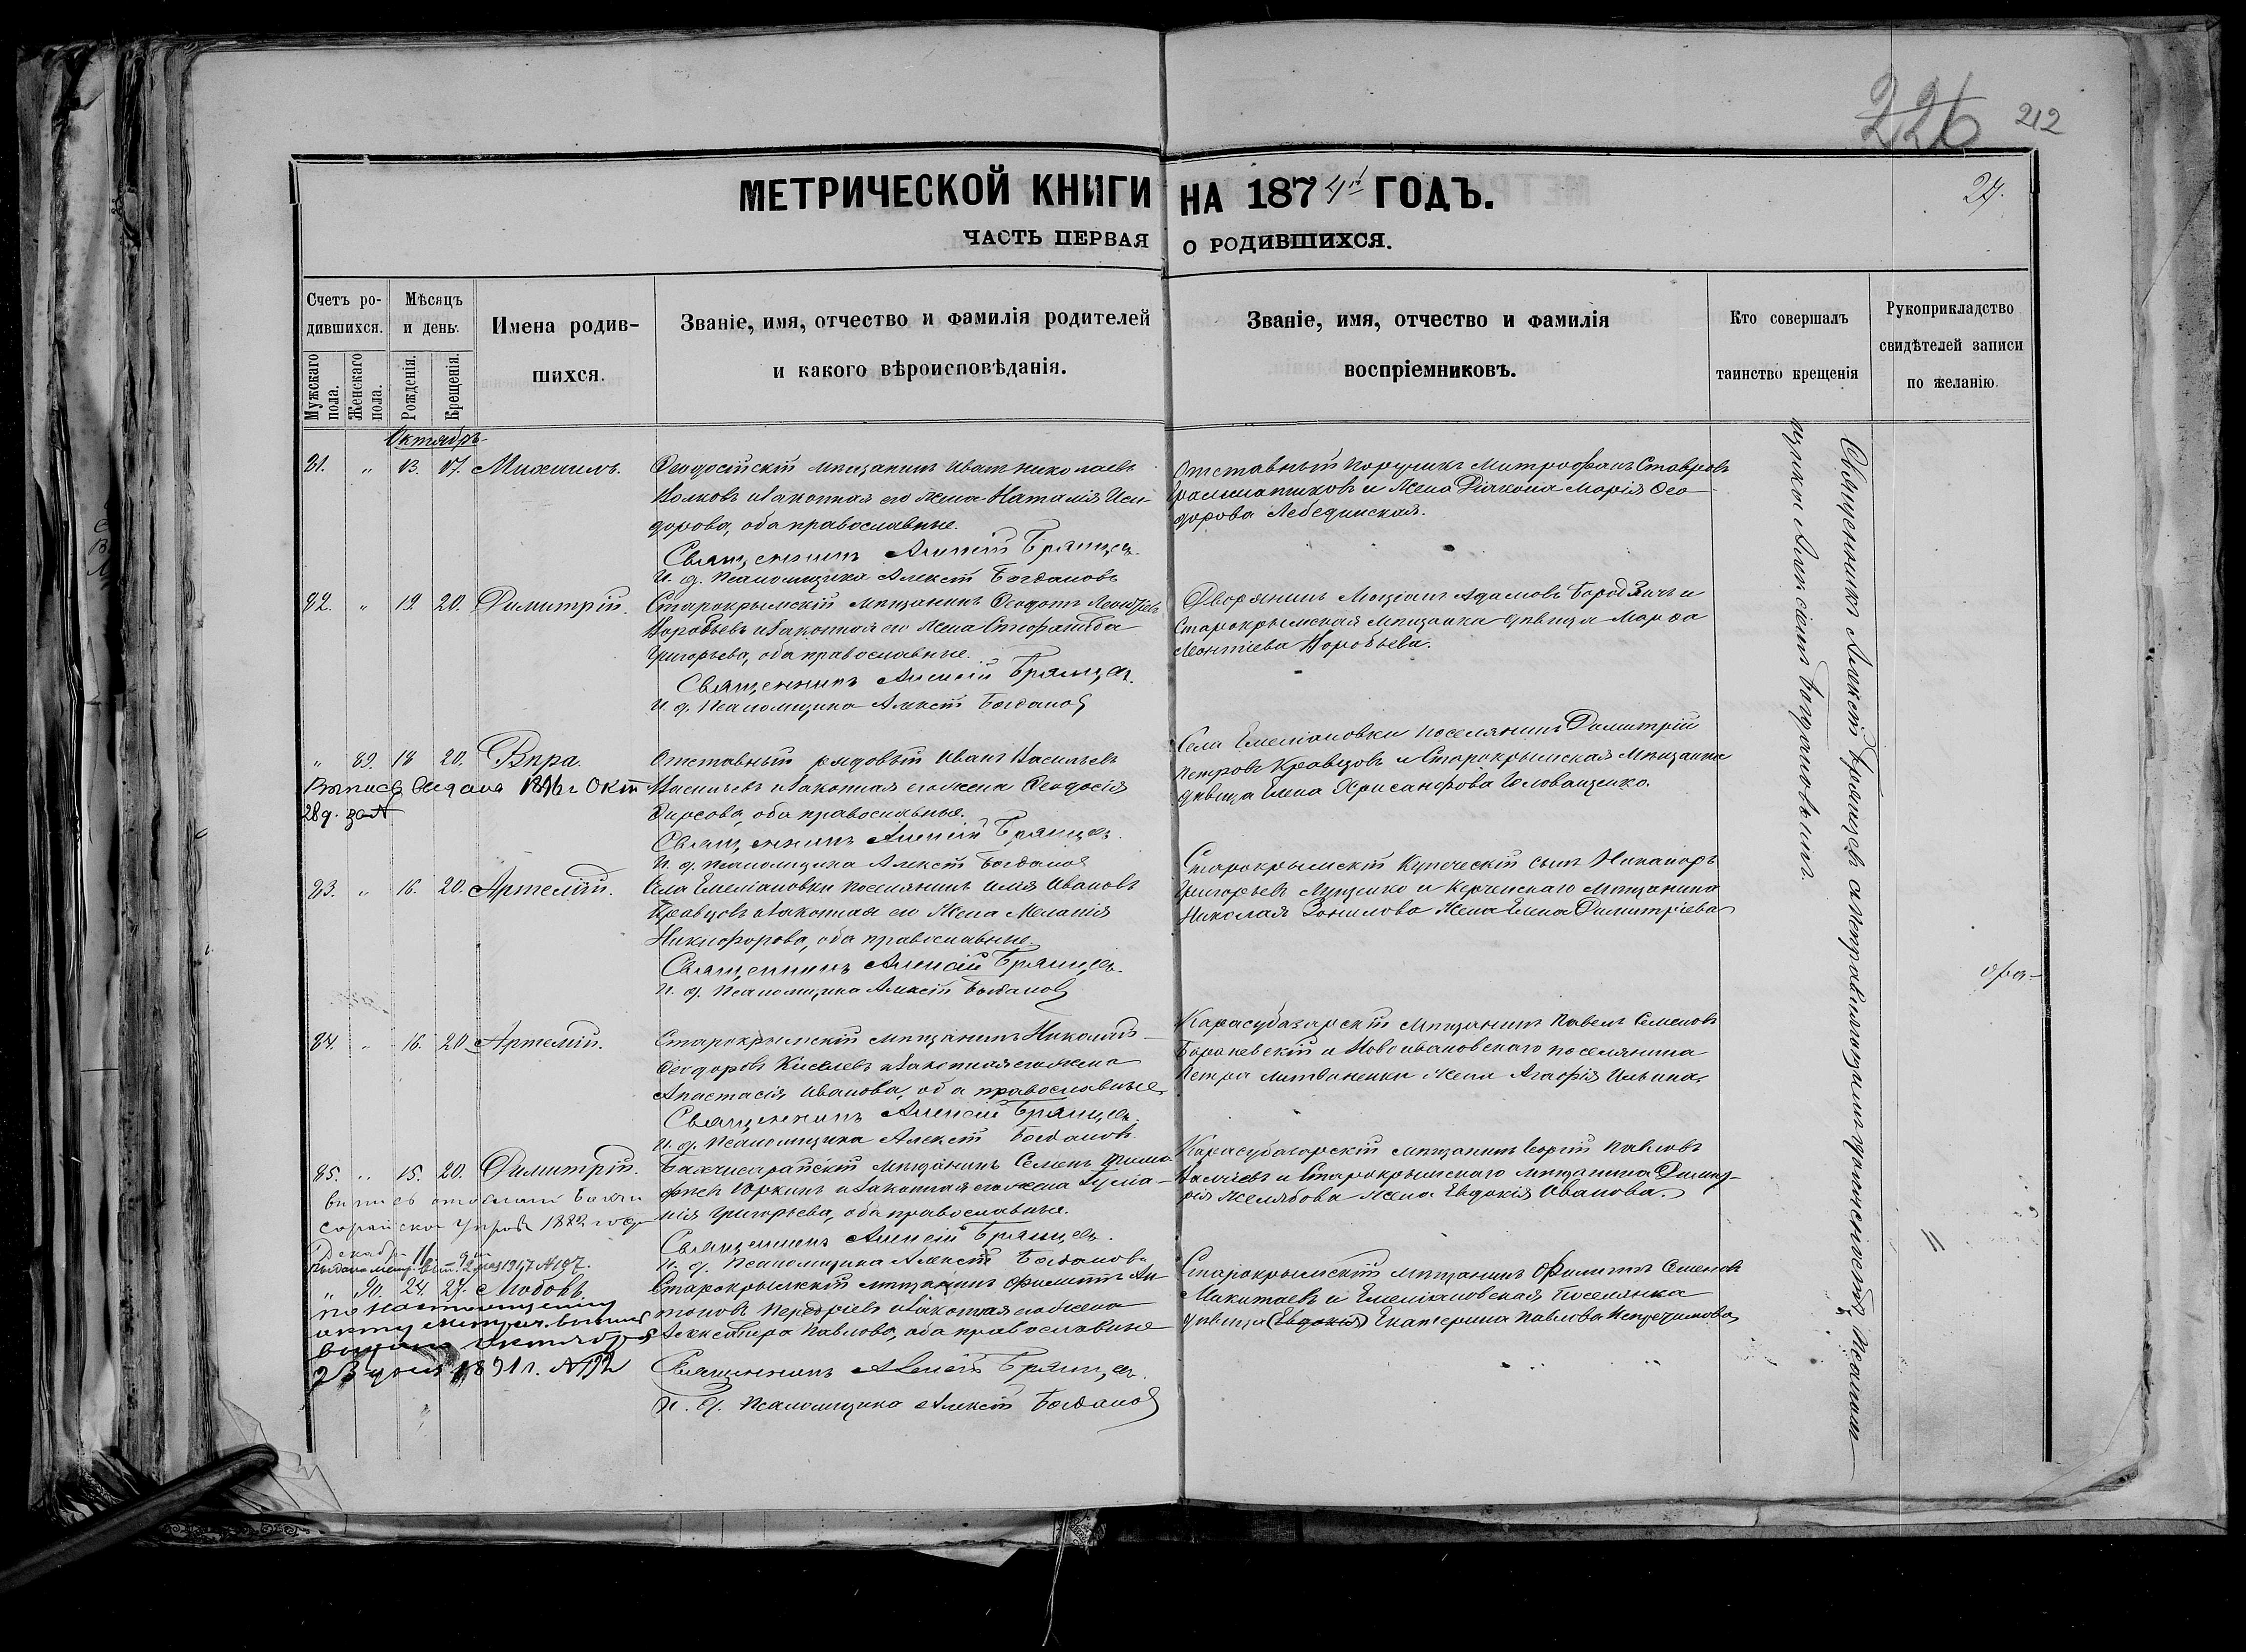 226 212
МЕТРИЧЕСКОЙ КНИГИ НА 1874й ГОДЪ.
27.
ЧАСТЬ ПЕРВАЯ О РОДИВШИХСЯ.
Счетъ родившихся.
Мужскаго пола.
Женскаго пола.
Мѣсяцъ и день.
Рожденія.
Крещенія.
Имена родившихся.
Званіе, имя, отчество и фамилія родителей
и какого вѣроисповѣданія.
Званіе, имя, отчество и фамилія
воспріемниковъ.
Кто совершалъ
таинство крещенія
Рукоприкладство
свидѣтелей записи
по желанію.
Октябрь
81. " 13. 17. Михаилъ.
Ѳеодосійскій мѣщанинъ Иванъ Николаевъ
Волковъ и законная его жена Наталія Иси-
дорова, оба православные.
Священникъ Алексій Брянцев.
И. д. Псаломщика Алексій Богдановъ
Отставный поручикъ Митрофанъ Ставровъ
и жена Діакона Марія Ѳео-
дорова Лебединская.
82. " 12 20. Димитрій.
Старокрымскій мѣщанинъ Ѳеодотъ Леонтіевъ
Воробьевъ и законная его жена Стефанида
Григорьева, оба православные.
Священникъ Алексій Брянцев.
И. д. Псаломщика Алексій Богданов
Дворянинъ Адамовъ и
Старокрымская мѣщанка дѣвица Марѳа
Леонтіева Воробьева.
" 89. 18 20. Вѣра.
Отставный рядовый Иванъ Васильевъ
Васильевъ и законная его жена Ѳеодосія
Фирсова, оба православные.
Священникъ Алексій Брянцев.
И. д. Псаломщика Алексій Богданов
Села Емеліановки поселянинъ Димитрій
Петровъ Кравцовъ и Старокрымская мѣщанка
дѣвица Елена Хрисанфова Головащенко.
Выпись выдана 1896 г Окт
28 д. за №
83. " 16. 20. Артемій.
Села Емеліановки поселянинъ Илія Ивановъ
Кравцовъ и законная его жена Меланія
Никифорова, оба православные.
Священникъ Алексій Брянцев.
И. д. Псаломщика Алексій Богданов
Старокрымскій Купеческій сынъ Никаноръ
Григорьевъ и Керченскаго мѣщанина
Николая жена Елена Димитріева
84. " 16. 20. Артемій.
Старокрымскій мѣщанинъ Николай
Ѳеодоровъ Киселевъ и законная его жена
Анастасія Иванова, оба православные
Священникъ Алексій Брянцев.
И. д. Псаломщика Алексій Богданов
Карасубазарскій мѣщанинъ Павелъ Семеновъ
и Новоивановскаго поселянина
Петра жена Агафія Ильина
85. " 15. 20. Димитрій.
Бахчисарайскій мѣщанинъ Семенъ Тимо-
феевъ Юркинъ и законная его жена
Григорьева, оба православные.
Священникъ Алексій Брянцев.
И. д. Псаломщика Алексій Богдановъ
Карасубазарскій мѣщанинъ Георгій Павловъ
и Старокрымскаго мѣщанина Димит-
рія Желябова жена Евдокія Иванова.
1882 года
Декабр. 11 дня
1917 № 197.
" 90. 24. 27. Любовь.
Старокрымскій мѣщанинъ Филиппъ Ан-
тоновъ и законная его жена
Александра Павлова, оба православные
Священникъ Алексій Брянцев.
И. д. Псаломщика Алексій Богданов
Старокрымскій мѣщанинъ Филиппъ Семеновъ
и Емеліановская поселянка
дѣвица (Евдокія) Екатерина Павлова
По настоящему
акту
Октября
23 дня 1891 г. № 192
Священникъ Алексій Брянцевъ съ исправляющимъ должность Псалом-
щика Алексіемъ Богдановымъ.